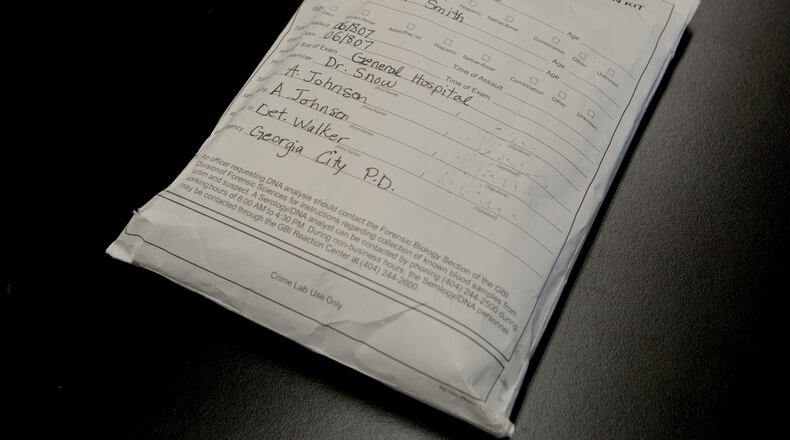 KIT
Smith
Hispanic Native-Amer Age
Asian/Pac Isl. Hispanic Native-Amer Combination Other Unknown
Age
Date of Assault 06/18/07 Time of Assault Combination Other Unknown
06/18/07 Time of Exam
Site of Exam General Hospital
Examiner Dr. Snow
(Print Name) (Signature)
A. Johnson
(Print Name) (Signature)
A Johnson
(Print Name) (Signature)
to Det. Walker
(Print Name) (Signature)
Georgia City P.D.
An officer requesting DNA analysis should contact the Forensic Biology Section of the GBI
Division of Forensic Sciences for instructions regarding collection of known blood samples from
victim and suspect. A Serology/DNA analyst can be contacted by phoning (404) 244-2500 during
working hours of 8:00 AM to 4:30 PM. During non-business hours, the Serology/DNA personnel
may be contacted through the GBI Reaction Center at (404) 244-2600.
Crime Lab Use Only